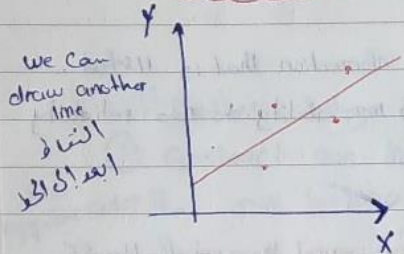 we can
draw another
line
النقاط
ابعد الى الخط
Y
X